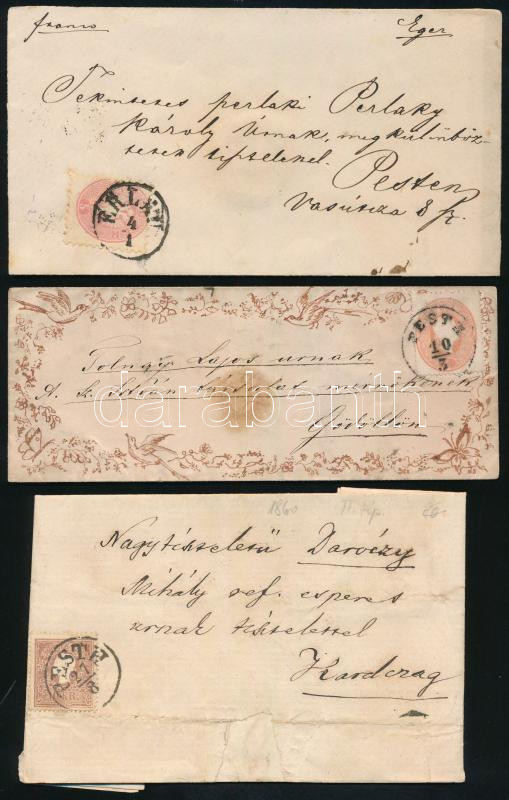 franco Eger
Tekintetes perlaki Perlaky
Károly Úrnak, megkülönböz-
tetett tisztelettel.
Pesten
ERLAU
4
1
PESTH
10
3
Tolnay Lajos urnak
Gödöllőn
darabanth
1860 II. típ.
Nagytiszteletű Daróczy
Mihály ref. esperes
urnak tisztelettel
Kardczag
PESTH
27
8